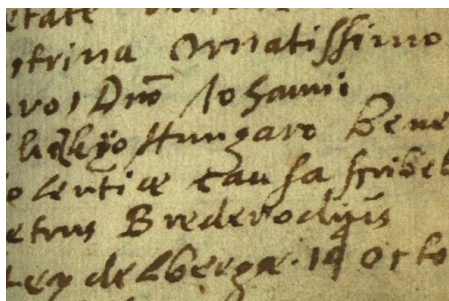 etate
strina Ornatissimo
Dnō Johanni
Hungaro bene
olentiæ causa scribeb
etrus Brederodius
eydelbergæ. 19 Octo